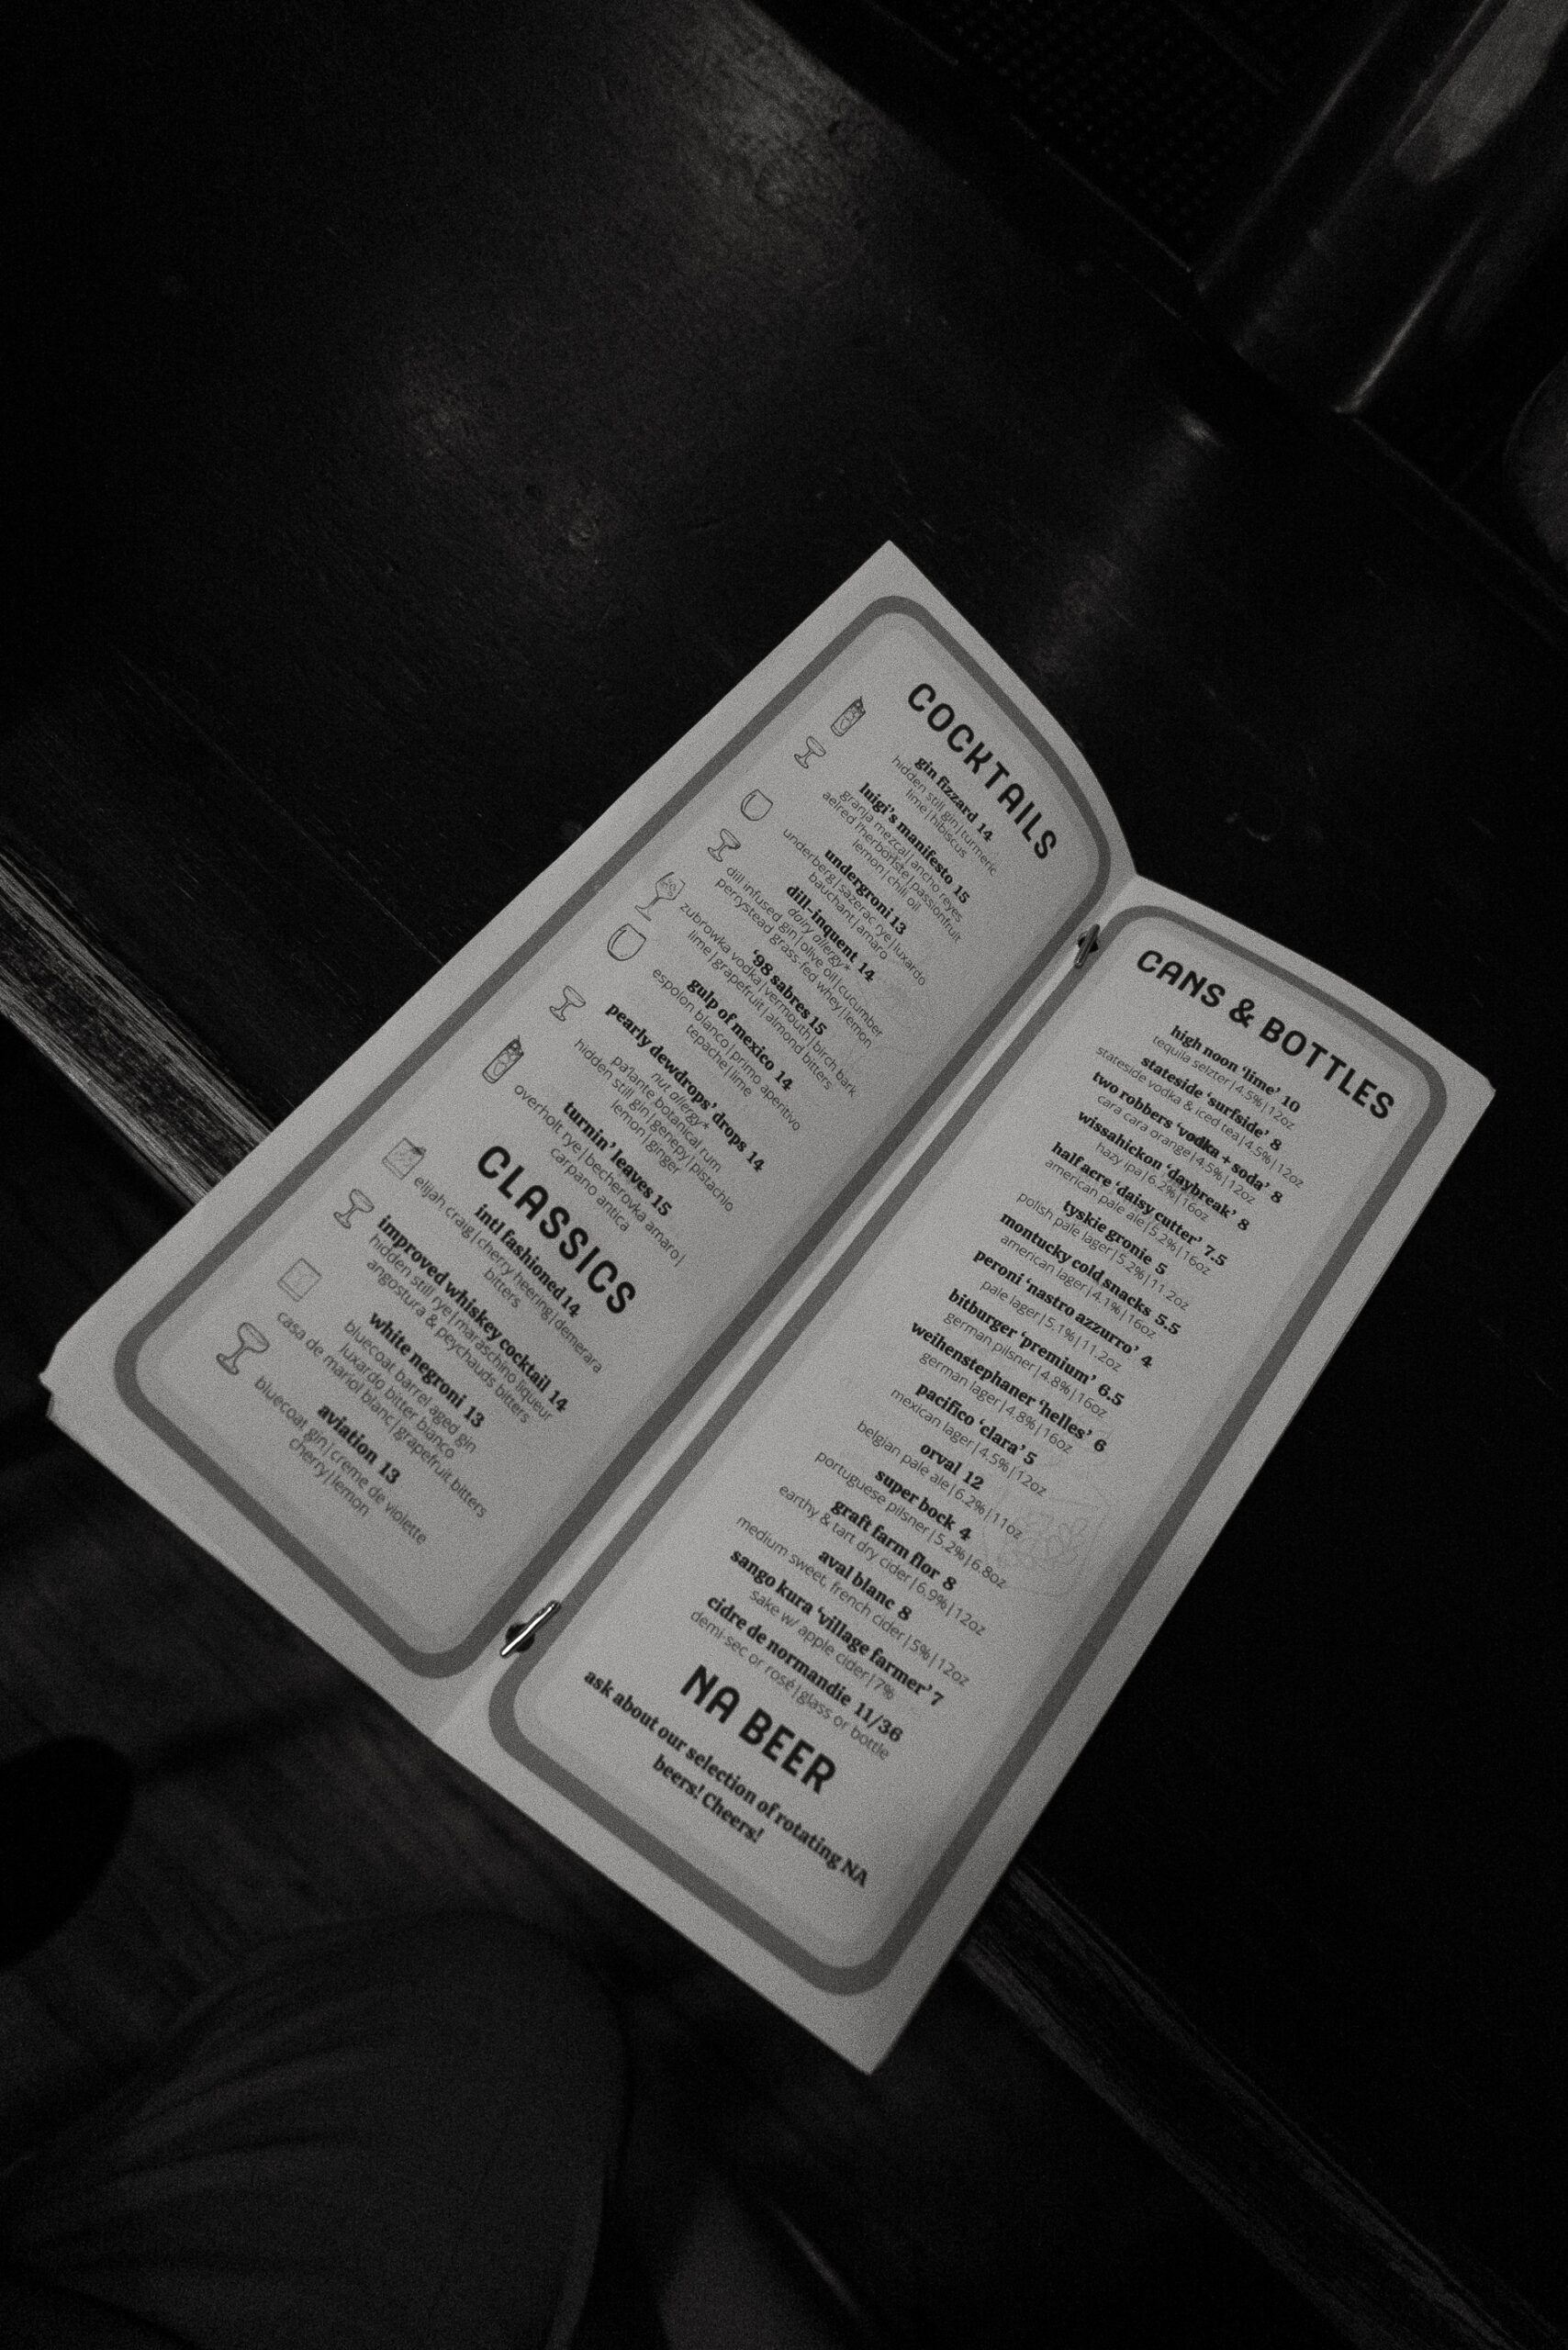 COCKTAILS
gin fizzard 14
hidden still gin | turmeric
lime | hibiscus
luigi's manifesto 15
granja mezcal | ancho reyes
aelred l'herboriste | passionfruit
lemon | chili oil
undergroni 13
underberg | sazerac rye | luxardo
bauchant | amaro
dill-inquent 14
dairy allergy*
dill infused gin | olive oil | cucumber
perrystead grass-fed whey | lemon
'98 sabres 15
zubrowka vodka | vermouth | birch bark
lime | grapefruit | almond bitters
gulp of mexico 14
espolon blanco | primo aperitivo
tepache | lime
pearly dewdrops' drops 14
nut allergy*
pa'lante botanical rum
hidden still gin | genepy | pistachio
lemon | ginger
turnin' leaves 15
overholt rye | becherovka amaro |
carpano antica
CLASSICS
intl fashioned 14
elijah craig | cherry heering | demerara
bitters
improved whiskey cocktail 14
hidden still rye | maraschino liqueur
angostura & peychauds bitters
white negroni 13
bluecoat barrel aged gin
luxardo bitter bianco
casa de mariol blanc | grapefruit bitters
aviation 13
bluecoat gin | creme de violette
cherry | lemon
CANS & BOTTLES
high noon 'lime' 10
tequila selzter | 4.5% | 12oz
stateside 'surfside' 8
stateside vodka & iced tea | 4.5% | 12oz
two robbers 'vodka + soda' 8
cara cara orange | 4.5% | 12oz
wissahickon 'daybreak' 8
hazy ipa | 6.2% | 16oz
half acre 'daisy cutter' 7.5
american pale ale | 5.2% | 16oz
tyskie gronie 5
polish pale lager | 5.2% | 11.2oz
montucky cold snacks 5.5
american lager | 4.1% | 16oz
peroni 'nastro azzurro' 4
pale lager | 5.1% | 11.2oz
bitburger 'premium' 6.5
german pilsner | 4.8% | 16oz
weihenstephaner 'helles' 6
german lager | 4.8% | 16oz
pacifico 'clara' 5
mexican lager | 4.5% | 12oz
orval 12
belgian pale ale | 6.2% | 11oz
super bock 4
portuguese pilsner | 5.2% | 6.8oz
graft farm flor 8
earthy & tart dry cider | 6.9% | 12oz
aval blanc 8
medium sweet, french cider | 5% | 12oz
sango kura 'village farmer' 7
sake w/ apple cider | 7%
cidre de normandie 11/36
demi-sec or rosé | glass or bottle
NA BEER
ask about our selection of rotating NA
beers! Cheers!